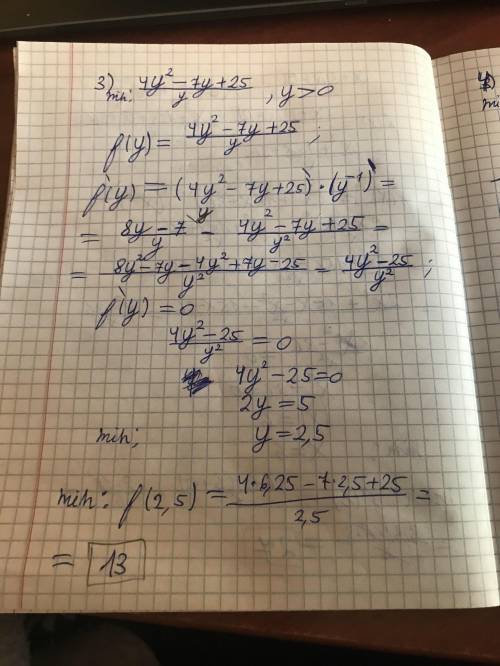 3) min: (4y² - 7y + 25)/y , y > 0
f(y) = (4y² - 7y + 25)/y ;
f'(y) = (4y² - 7y + 25)' · (y⁻¹)' =
= (8y - 7)/y - (4y² - 7y + 25)/y² =
= (8y² - 7y - 4y² + 7y - 25)/y² = (4y² - 25)/y² ;
f'(y) = 0
(4y² - 25)/y² = 0
4y² - 25 = 0
2y = 5
min; y = 2,5
min: f(2,5) = (4·6,25 - 7·2,5 + 25)/2,5 =
= 13